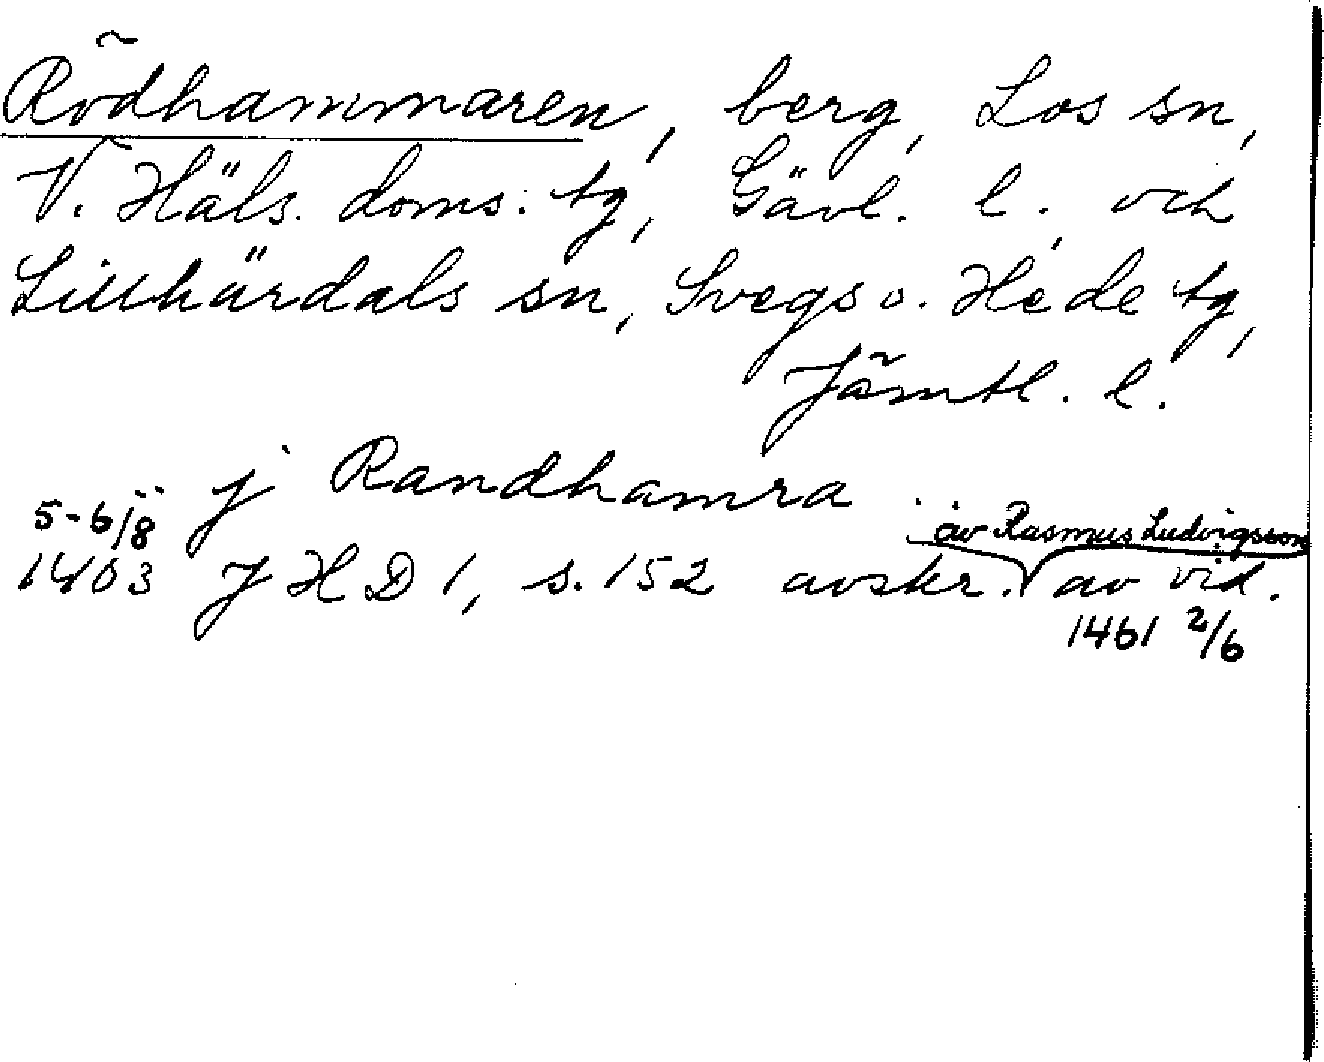 Rödhammaren, berg, Los sn,
V. Häls. doms: tg, Gävl. l. och
Lillhärdals sn, Svegs o. Hede tg,
Jämtl. l.
j Randhamra
5-6/8 av Rasmus Ludvigsson
1403 JHD 1, s. 152 avskr. av vid.
1461 2/6